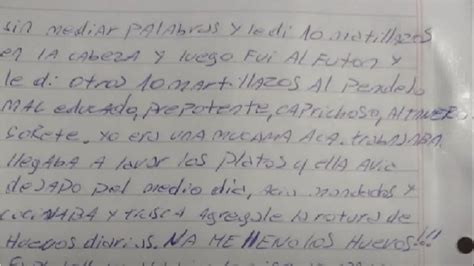 sin mediar PALABras y le di 10 matillazos
en lA cAbezA y luego Fui Al Futon y
le di otros 10 martillazos Al Pendelo
MAL educAdo, prepotente, CAprichoso, Al
sorete. yo erA unA MucAMA AcA. trabaJABA
llegAbA A lavar los platos y ellA Avia
desde el medio diA, mandados y
cocinABA y agregale la rotura de
Huevos diarios. NA ME llENO los HuEvos!!!